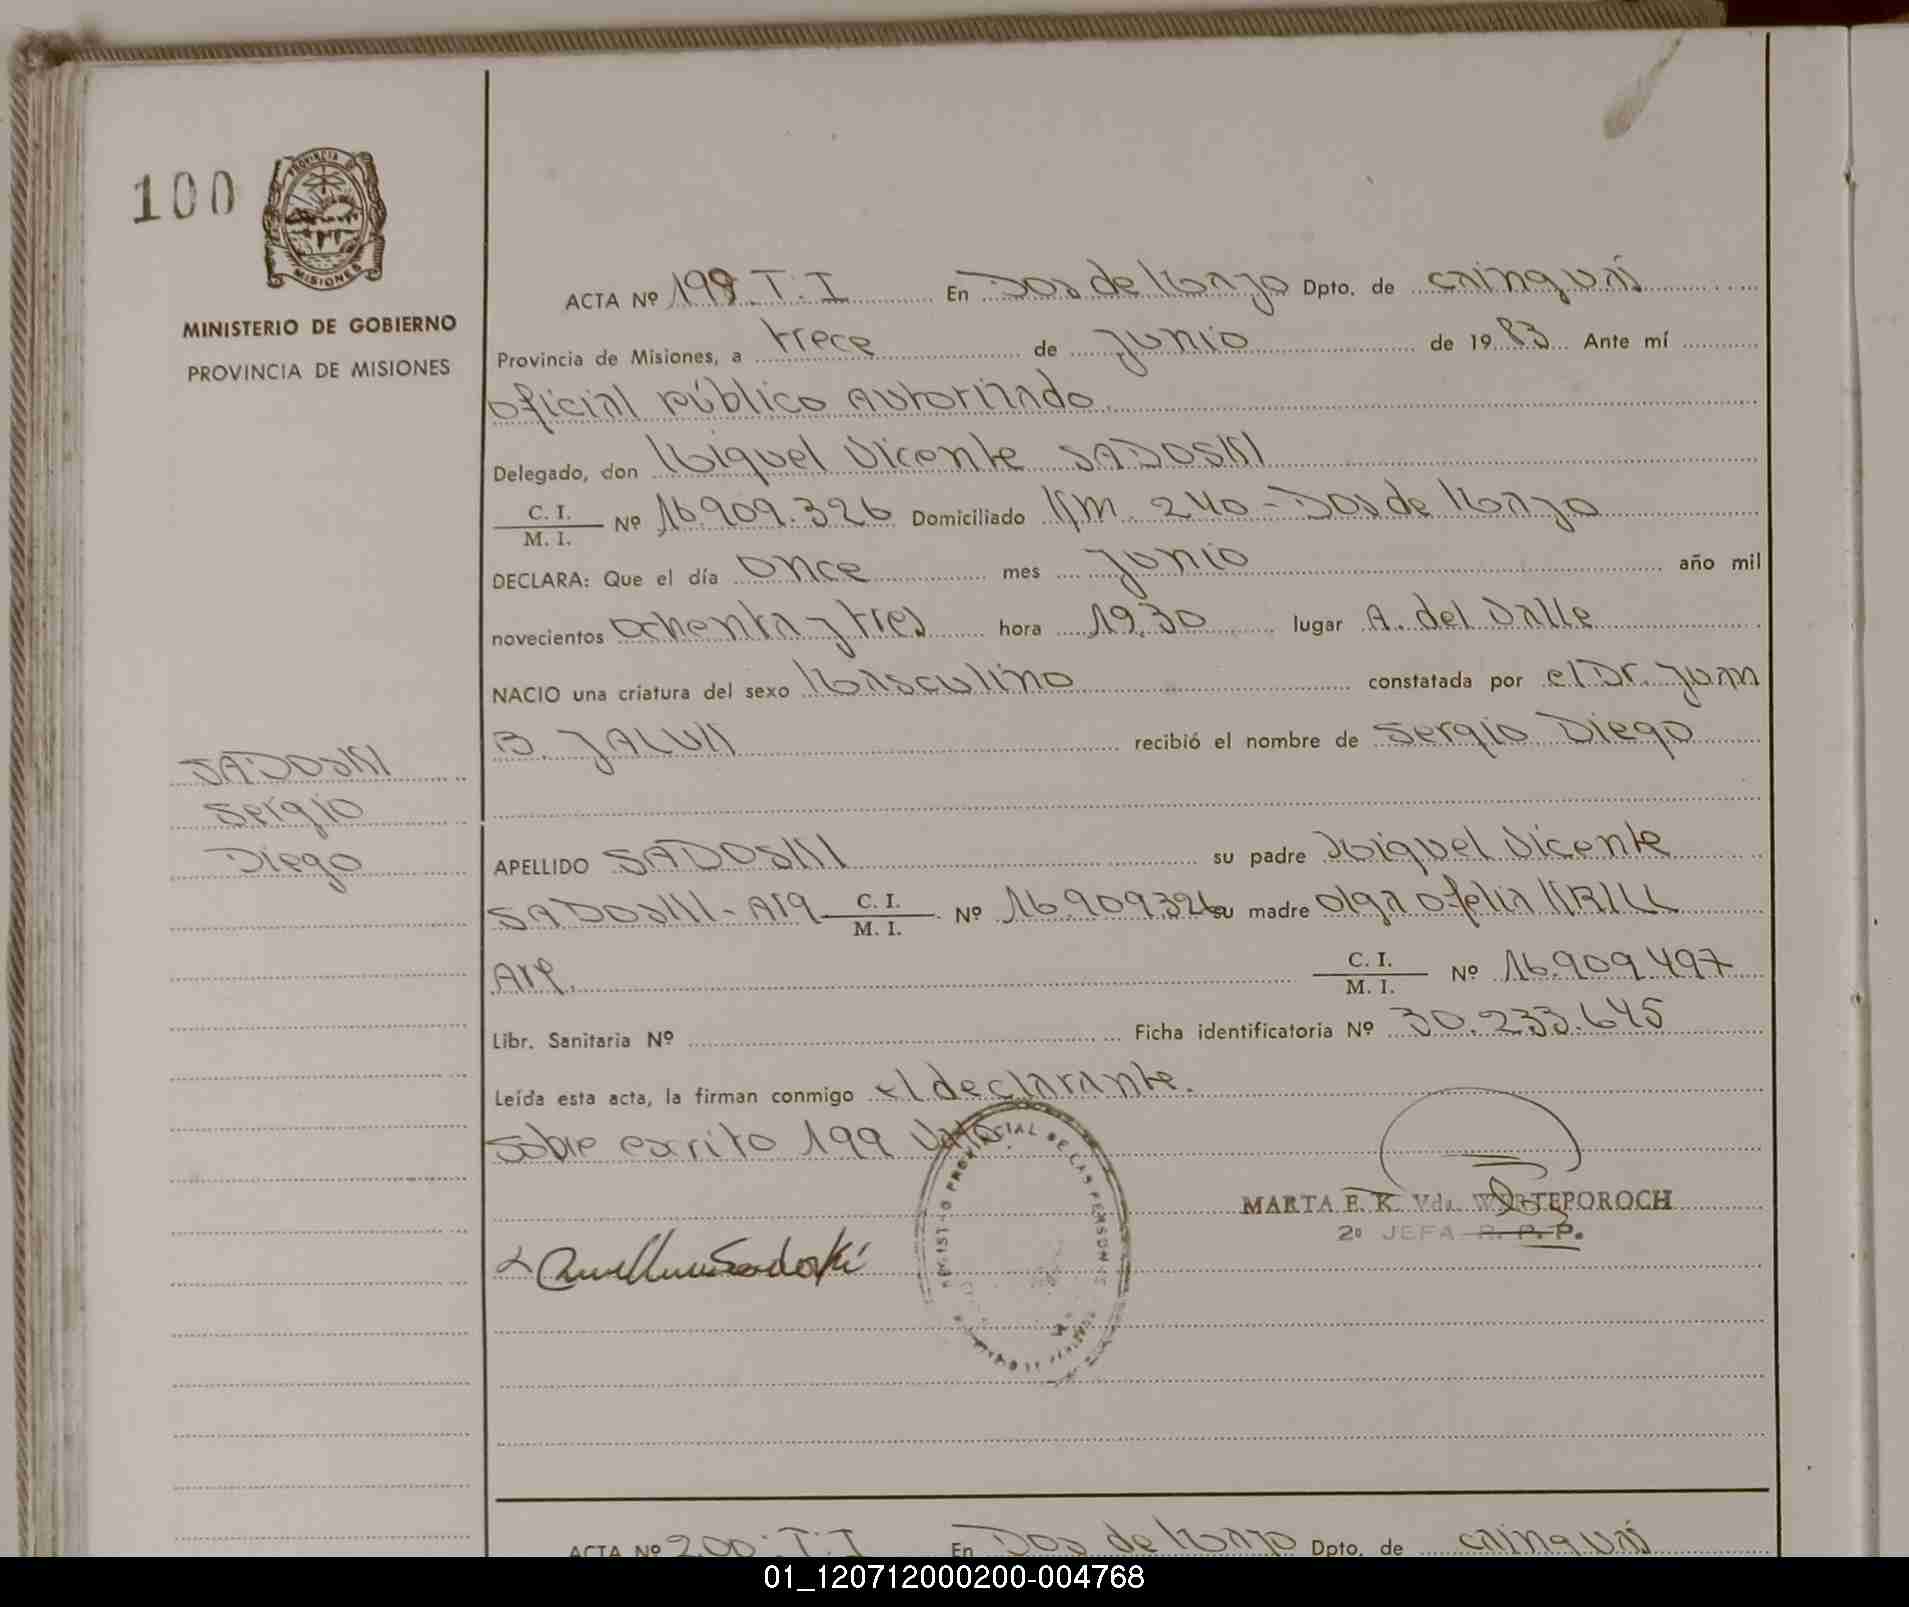 100
PROVINCIA DE
MISIONES
MINISTERIO DE GOBIERNO
PROVINCIA DE MISIONES
ACTA Nº 199. T. I En Dos de Mayo Dpto. de Cainguás
Provincia de Misiones, a trece de Junio de 1983 Ante mí
oficial público autorizado
Delegado, don Miguel Vicente SADOSKI
C. I.
M. I. Nº 16.909.326 Domiciliado Km. 240 - Dos de Mayo
DECLARA: Que el día once mes Junio año mil
novecientos ochenta y tres hora 19,30 lugar A. del Valle
NACIO una criatura del sexo Masculino constatada por el Dr. Juan
B. recibió el nombre de Sergio Diego
SADOSKI
Sergio
Diego
APELLIDO SADOSKI su padre Miguel Vicente
SADOSKI - Arg C. I.
M. I. Nº 16.909326 su madre Olga Ofelia KRILL
Arg. C. I.
M. I. Nº 16.909.497
Libr. Sanitaria Nº Ficha identificatoria Nº 30.233.645
Leída esta acta, la firman conmigo el declarante.
Sobre escrito 199 Vale.
REGISTRO PROVINCIAL DE LAS PERSONAS
MARTA E. K. Vda. WERTEPOROCH
2º JEFA R. P. P.
ACTA Nº 200. T. I En Dos de Mayo Dpto. de Cainguás
01_120712000200-004768